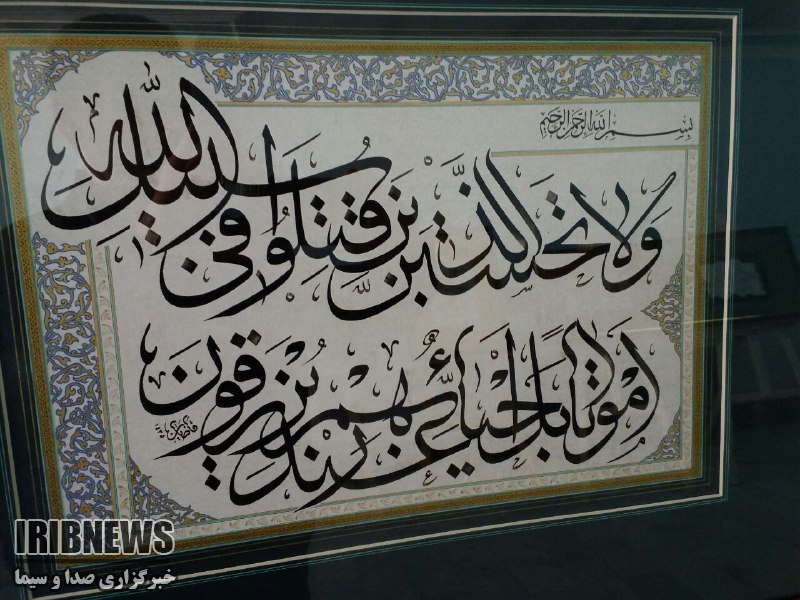 بسم الله الرحمن الرحیم
وَلَا تَحْسَبَنَّ الَّذِينَ قُتِلُوا فِي سَبِيلِ اللَّهِ
أَمْوَاتًا بَلْ أَحْيَاءٌ عِنْدَ رَبِّهِمْ يُرْزَقُونَ
IRIBNEWS
خبرگزاری صدا و سیما